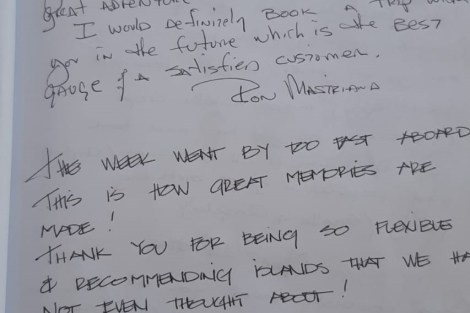 GREAT ADVENTURE
I would definitely BOOK A TRIP with
you in the future which is the BEST
GAUGE of a satisfied customer.
Ron MASTRIANA
THE WEEK WENT BY TOO FAST ABOARD
THIS IS HOW GREAT MEMORIES ARE
MADE!
THANK YOU FOR BEING SO FLEXIBLE
& RECOMMENDING ISLANDS THAT WE HA
NOT EVEN THOUGHT ABOUT!